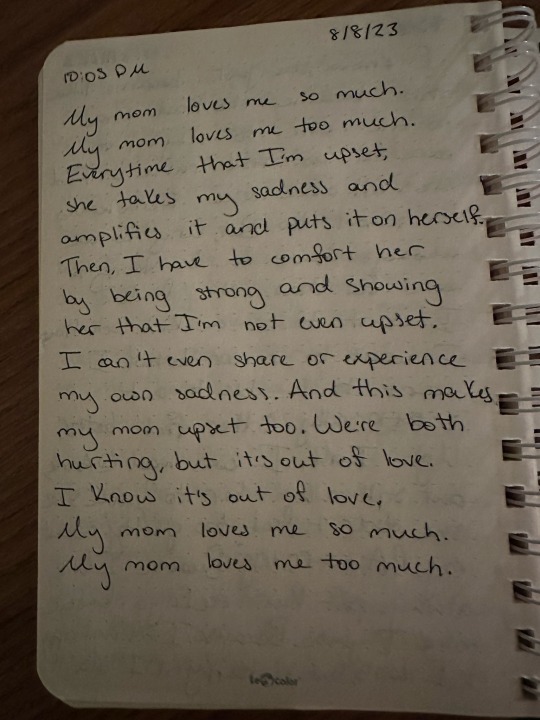 8/8/23
10:03 PM
My mom loves me so much.
My mom loves me too much.
Everytime that I'm upset,
she takes my sadness and
amplifies it and puts it on herself.
Then, I have to comfort her
by being strong and showing
her that I'm not even upset.
I can't even share or experience
my own sadness. And this makes
my mom upset too. We're both
hurting, but it's out of love.
I know it's out of love.
My mom loves me so much.
My mom loves me too much.